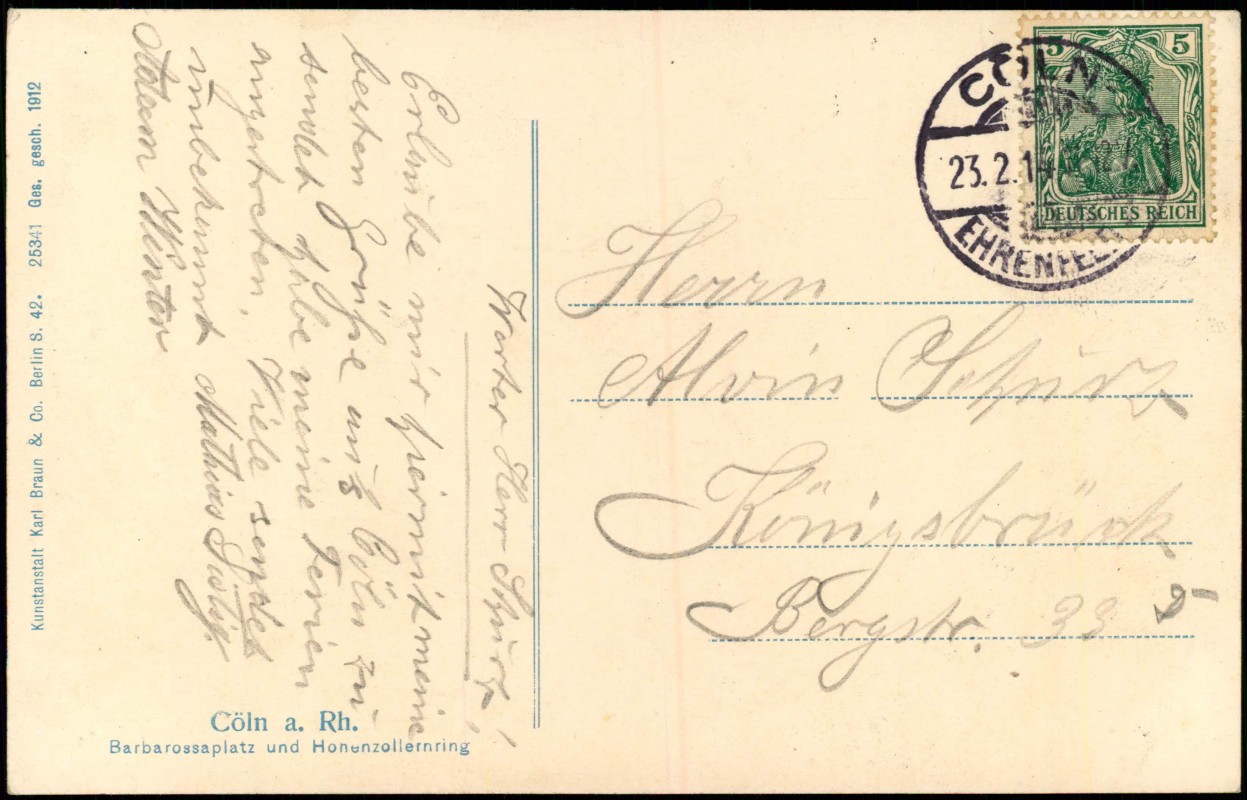 Werter Herr Schurz!
Erlaube mir hiermit meine
besten Grüße aus Cöln zu
senden habe meine Ferien
angetreten. Viele sendet
unbekannt Mathias
Herrn
Alvin Schurz
Königsbrück
Bergstr. 33
5 5
DEUTSCHES REICH
CÖLN
23.2.14
EHRENFELD
Cöln a. Rh.
Barbarossaplatz und Hohenzollernring
Kunstanstalt Karl Braun & Co. Berlin S. 42. 25341 Ges. gesch. 1912